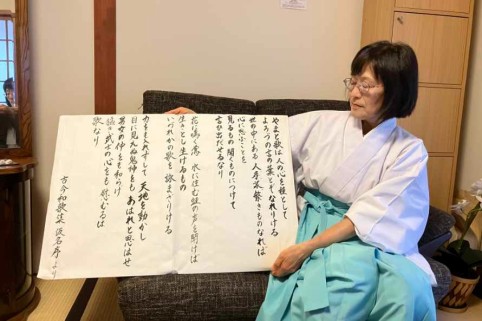 やまと歌は人の心を種として
よろづの言の葉とぞなれりける
世の中にある人産業繁きものなれば
心に思ふことを
見るもの聞くものにつけて
言ひ出だせるなり
花に鳴く鶯水に住む蛙の声を聞けば
生きとし生けるもの
いづれか歌を詠まざりける
力をも入れずして天地を動かし
目に見えぬ鬼神をもあはれと思はせ
男女の仲をも和らげ
猛き武士の心をも慰むるは
歌なり
古今和歌集仮名序より